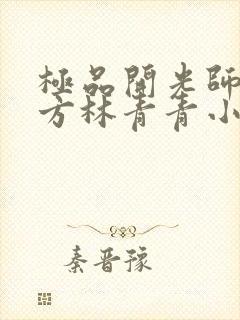 極品開光師
方林青青小
秦晋豫